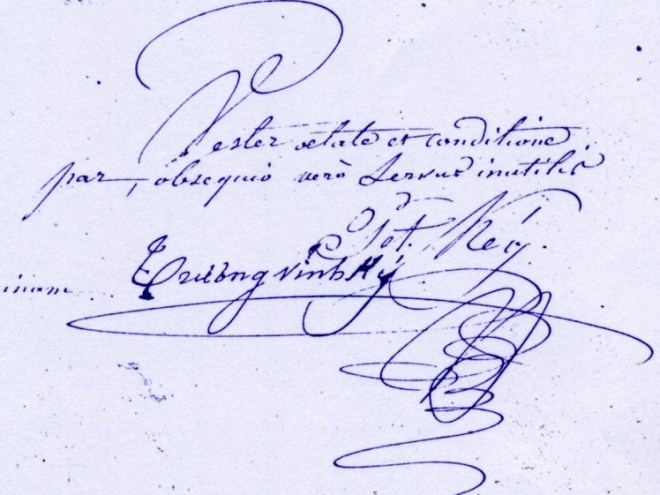 Vester ætate et conditione
par, obsequio verò Servus inutilis
Pet. Ký.
Trương Vĩnh Ký